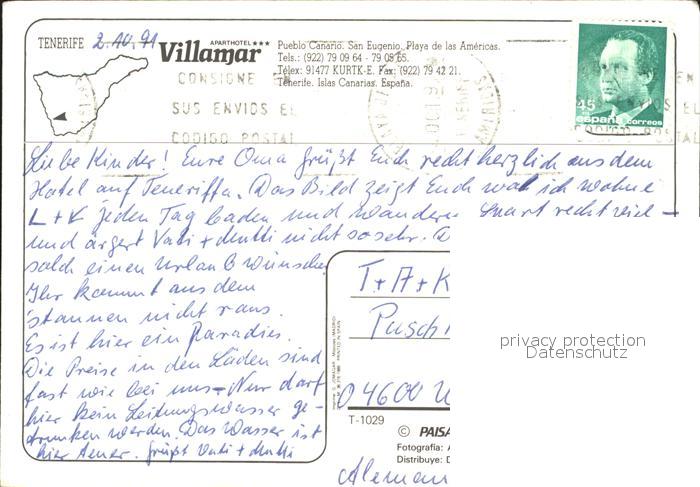 TENERIFE 2.10.91
APARTHOTEL ★★★
Villamar
Pueblo Canario. San Eugenio. Playa de las Américas.
Tels.: (922) 79 09 64 - 79 05 65.
Télex: 91477 KURTK-E. Fax: (922) 79 42 21.
Tenerife. Islas Canarias. España.
CONSIGNE EN
SUS ENVIOS EL
CODIGO POSTAL
45
españa correos
Liebe Kinder! Eure Oma grüßt Euch recht herzlich aus dem
Hotel auf Teneriffa. Das Bild zeigt Euch wo ich wohne
L + K jeden Tag baden und wandern Spart recht viel –
und ärgert Vati + Mutti nicht so sehr. D
solch einen Urlaub wünschen
Ihr kommt aus dem
Staunen nicht raus.
Es ist hier ein Paradies.
Die Preise in den Läden sind
fast wie bei uns – Nur darf
hier kein Leitungswasser ge-
trunken werden. Das Wasser ist
hier teuer. Grüßt Vati + Mutti
T + A + K
Pusch
04600
Aleman
T-1029
© PAISA
Fotografía: A
Distribuye: D
privacy protection
Datenschutz